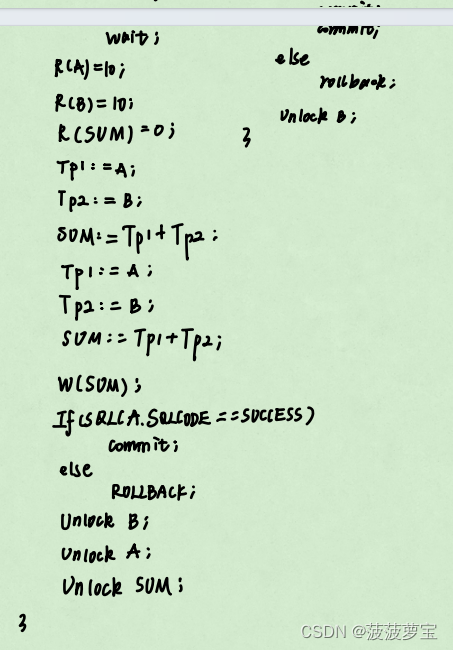 wait;
R(A)=10;
R(B)=10;
R(SUM)=0;
Tp1:=A;
Tp2:=B;
SUM:=Tp1+Tp2;
Tp1:=A;
Tp2:=B;
SUM:=Tp1+Tp2;
W(SUM);
If(SQLCA.SQLCODE==SUCCESS)
commit;
else
ROLLBACK;
Unlock B;
Unlock A;
Unlock SUM;
}
commit;
else
rollback;
Unlock B;
}
CSDN @菠菠萝宝